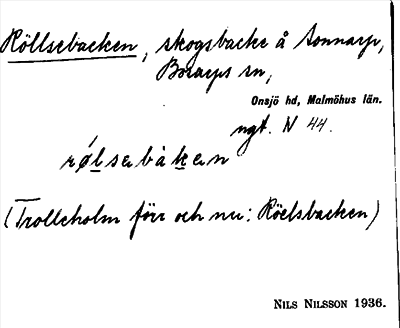 Röllsebacken, skogsbacke å Sonnarp,
Bosarps sn,
Onsjö hd, Malmöhus län.
ngt. N 44.
rǿlsabàkan
(Trolleholm förr och nu: Röelsbacken)
NILS NILSSON 1936.